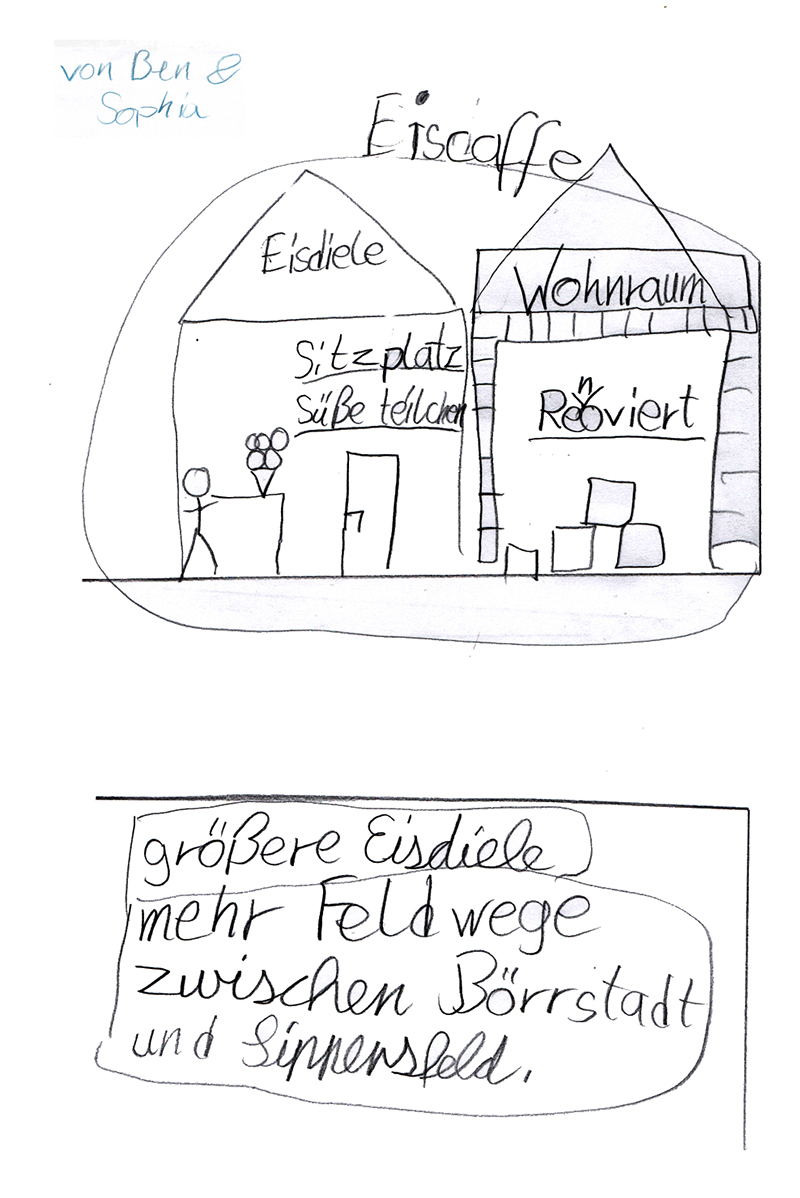 von Ben &
Sophia
Eiscaffe
Eisdiele
Sitzplatz
Süße teilchen
Wohnraum
Renoviert
größere Eisdiele
mehr Feldwege
zwischen Börrstadt
und Sippersfeld.